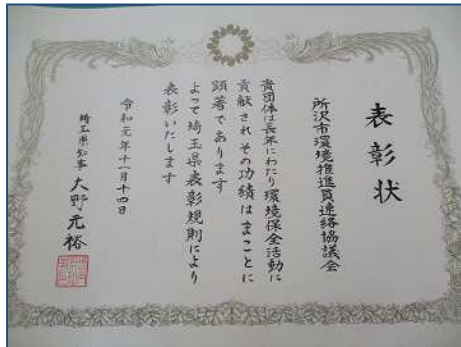 表彰状
所沢市環境推進員連絡協議会
貴団体は長年にわたり環境保全活動に
貢献されその功績はまことに
顕著であります
よって埼玉県表彰規則により
表彰いたします
令和元年十一月十四日
埼玉県知事 大野元裕